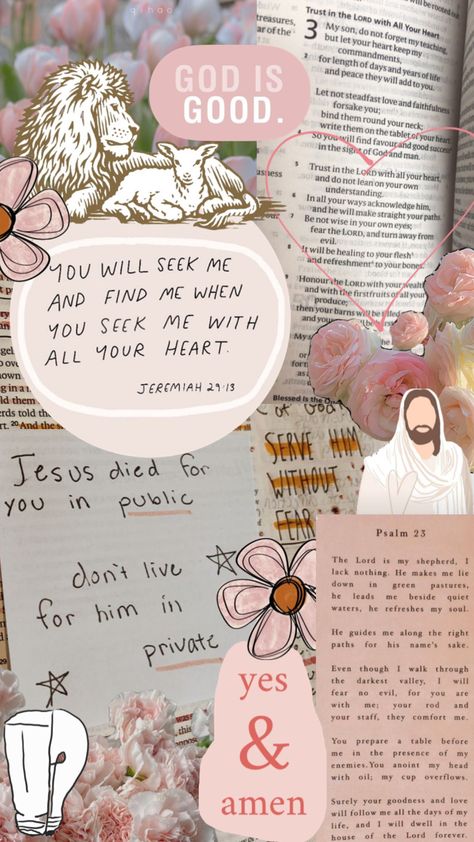 qihao
GOD IS
GOOD.
treasures,
Trust in the LORD with All Your Heart
3 My son, do not forget my teaching,
but let your heart keep my
commandments,
for length of days and years of life
and peace they will add to you.
Let not steadfast love and faithfulness
forsake you;
bind them round your neck;
write them on the tablet of your heart
So you will find favour and good success
in the sight of God and man.
Trust in the LORD with all your heart,
and do not lean on your own
understanding.
In all your ways acknowledge him,
and he will make straight your paths.
Be not wise in your own eyes;
fear the LORD, and turn away from
evil.
It will be healing to your flesh
and refreshment to your bones.
Honour the LORD with your wealth
and with the firstfruits of all your
produce;
then your barns will be filled
YOU WILL SEEK ME
AND FIND ME WHEN
YOU SEEK ME WITH
ALL YOUR HEART.
JEREMIAH 29:13
Blessed Is the
of God
SERVE HIM
WITHOUT
FEAR
Jesus died for
you in public
don't live
for him in
private
yes
&
amen
Psalm 23
The Lord is my shepherd, I
lack nothing. He makes me lie
down in green pastures,
he leads me beside quiet
waters, he refreshes my soul.
He guides me along the right
paths for his name's sake.
Even though I walk through
the darkest valley, I will
fear no evil, for you are
with me; your rod and
your staff, they comfort me.
You prepare a table before
me in the presence of my
enemies.You anoint my head
with oil; my cup overflows.
Surely your goodness and love
will follow me all the days of my
life, and I will dwell in the
house of the Lord forever.